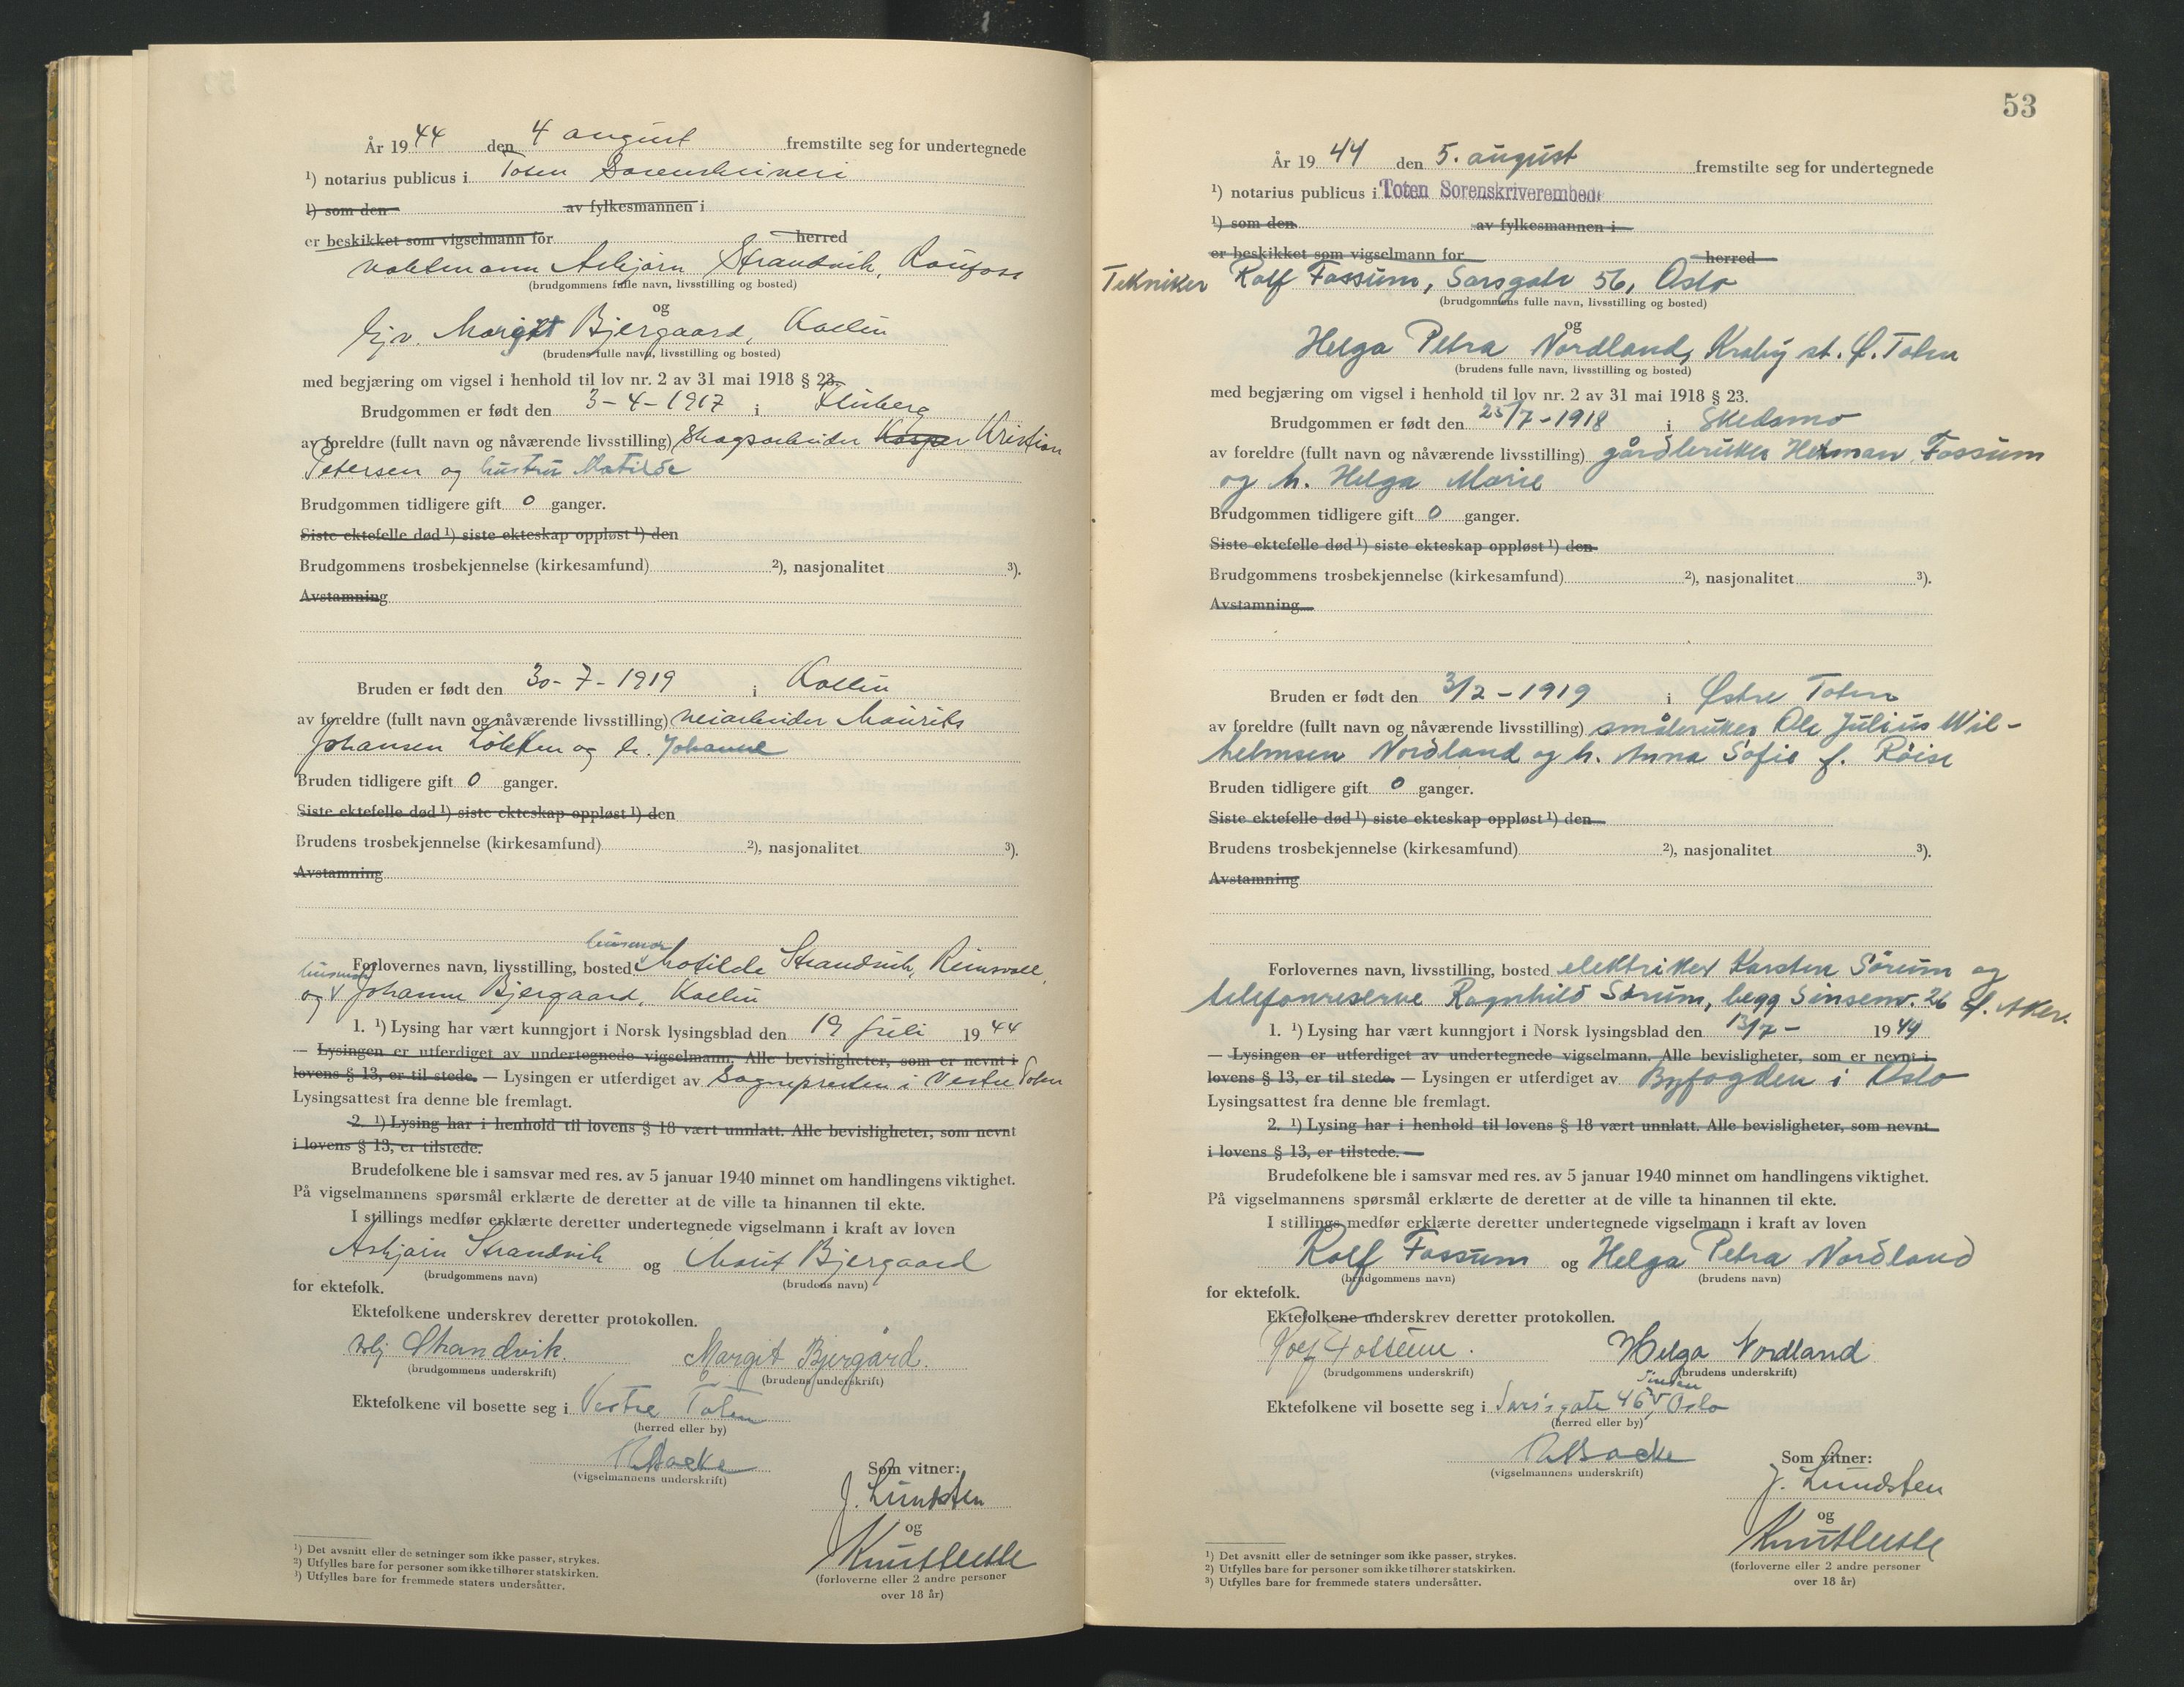 År 1944 den 4 august fremstilte seg for undertegnede
¹) notarius publicus i Toten Sorenskriveri
¹) som den av fylkesmannen i
er beskikket som vigselmann for herred
vaktmann Asbjørn Strandvik, Raufoss
(brudgommens fulle navn, livsstilling og bosted)
og
Margit Bjergaard, Kolbu
(brudens fulle navn, livsstilling og bosted)
med begjæring om vigsel i henhold til lov nr. 2 av 31 mai 1918 § 23.
Brudgommen er født den 3-4-1917 i Fluberg
av foreldre (fullt navn og nåværende livsstilling) skogsarbeider Kasper Kristian
Petersen og hustru Matilde
Brudgommen tidligere gift 0 ganger.
Siste ektefelle død ¹) siste ekteskap oppløst ¹) den
Brudgommens trosbekjennelse (kirkesamfund) ²), nasjonalitet ³).
Avstamning
Bruden er født den 30-7-1919 i Kolbu
av foreldre (fullt navn og nåværende livsstilling) veiarbeider Maurits
Johansen Løkken og h. Johanne
Bruden tidligere gift 0 ganger.
Siste ektefelle død ¹) siste ekteskap oppløst ¹) den
Brudens trosbekjennelse (kirkesamfund) ²), nasjonalitet ³).
Avstamning
husmor
Forlovernes navn, livsstilling, bosted Matilde Strandvik, Reinsvoll,
husmor
og Johanne Bjergaard, Kolbu
1. ¹) Lysing har vært kunngjort i Norsk lysingsblad den 19 juli 1944
— Lysingen er utferdiget av undertegnede vigselmann. Alle bevisligheter, som er nevnt i
lovens § 13, er til stede. — Lysingen er utferdiget av Sognepresten i Vestre Toten
Lysingsattest fra denne ble fremlagt.
2. ¹) Lysing har i henhold til lovens § 18 vært unnlatt. Alle bevisligheter, som nevnt
i lovens § 13, er tilstede.
Brudefolkene ble i samsvar med res. av 5 januar 1940 minnet om handlingens viktighet.
På vigselmannens spørsmål erklærte de deretter at de ville ta hinannen til ekte.
I stillings medfør erklærte deretter undertegnede vigselmann i kraft av loven
Asbjørn Strandvik og Marit Bjergaard
(brudgommens navn) (brudens navn)
for ektefolk.
Ektefolkene underskrev deretter protokollen.
Asbj Strandvik. Margit Bjergård.
(brudgommens underskrift) (brudens underskrift)
Ektefolkene vil bosette seg i Vestre Toten
(herred eller by)
(vigselmannens underskrift)
Som vitner:
J. Lundsten
og
(forloverne eller 2 andre personer
over 18 år)
¹) Det avsnitt eller de setninger som ikke passer, strykes.
²) Utfylles bare for personer som ikke tilhører statskirken.
³) Utfylles bare for fremmede staters undersåtter.
53
År 1944 den 5. august fremstilte seg for undertegnede
¹) notarius publicus i Toten Sorenskriverembede
¹) som den av fylkesmannen i
er beskikket som vigselmann for herred
Tekniker Rolf Fossum, Sarsgate 56, Oslo
(brudgommens fulle navn, livsstilling og bosted)
og
Helga Petra Nordland, Kraby st. Ø. Toten
(brudens fulle navn, livsstilling og bosted)
med begjæring om vigsel i henhold til lov nr. 2 av 31 mai 1918 § 23.
Brudgommen er født den 25/7-1918 i Skedsmo
av foreldre (fullt navn og nåværende livsstilling) gårdbruker Herman Fossum
og h. Helga Marie
Brudgommen tidligere gift 0 ganger.
Siste ektefelle død ¹) siste ekteskap oppløst ¹) den
Brudgommens trosbekjennelse (kirkesamfund) ²), nasjonalitet ³).
Avstamning
Bruden er født den 3/2-1919 i Østre Toten
av foreldre (fullt navn og nåværende livsstilling) småbruker Ole Julius Wil-
helmsen Nordland og h. Anna Sofie f. Røise
Bruden tidligere gift 0 ganger.
Siste ektefelle død ¹) siste ekteskap oppløst ¹) den
Brudens trosbekjennelse (kirkesamfund) ²), nasjonalitet ³).
Avstamning
Forlovernes navn, livsstilling, bosted elektriker Karsten Sørum og
telefonreserve Ragnhild Sørum, begg Sinsenv. 26 Ø. Aker.
1. ¹) Lysing har vært kunngjort i Norsk lysingsblad den 13/7- 1944
— Lysingen er utferdiget av undertegnede vigselmann. Alle bevisligheter, som er nevnt i
lovens § 13, er til stede. — Lysingen er utferdiget av Byfogden i Oslo
Lysingsattest fra denne ble fremlagt.
2. ¹) Lysing har i henhold til lovens § 18 vært unnlatt. Alle bevisligheter, som nevnt
i lovens § 13, er tilstede.
Brudefolkene ble i samsvar med res. av 5 januar 1940 minnet om handlingens viktighet.
På vigselmannens spørsmål erklærte de deretter at de ville ta hinannen til ekte.
I stillings medfør erklærte deretter undertegnede vigselmann i kraft av loven
Rolf Fossum og Helga Petra Nordland
(brudgommens navn) (brudens navn)
for ektefolk.
Ektefolkene underskrev deretter protokollen.
Rolf Fossum. Helga Nordland
(brudgommens underskrift) (brudens underskrift)
Ektefolkene vil bosette seg i Sarsgate 46 Oslo
(herred eller by)
(vigselmannens underskrift)
Som vitner:
J. Lundsten
og
(forloverne eller 2 andre personer
over 18 år)
¹) Det avsnitt eller de setninger som ikke passer, strykes.
²) Utfylles bare for personer som ikke tilhører statskirken.
³) Utfylles bare for fremmede staters undersåtter.